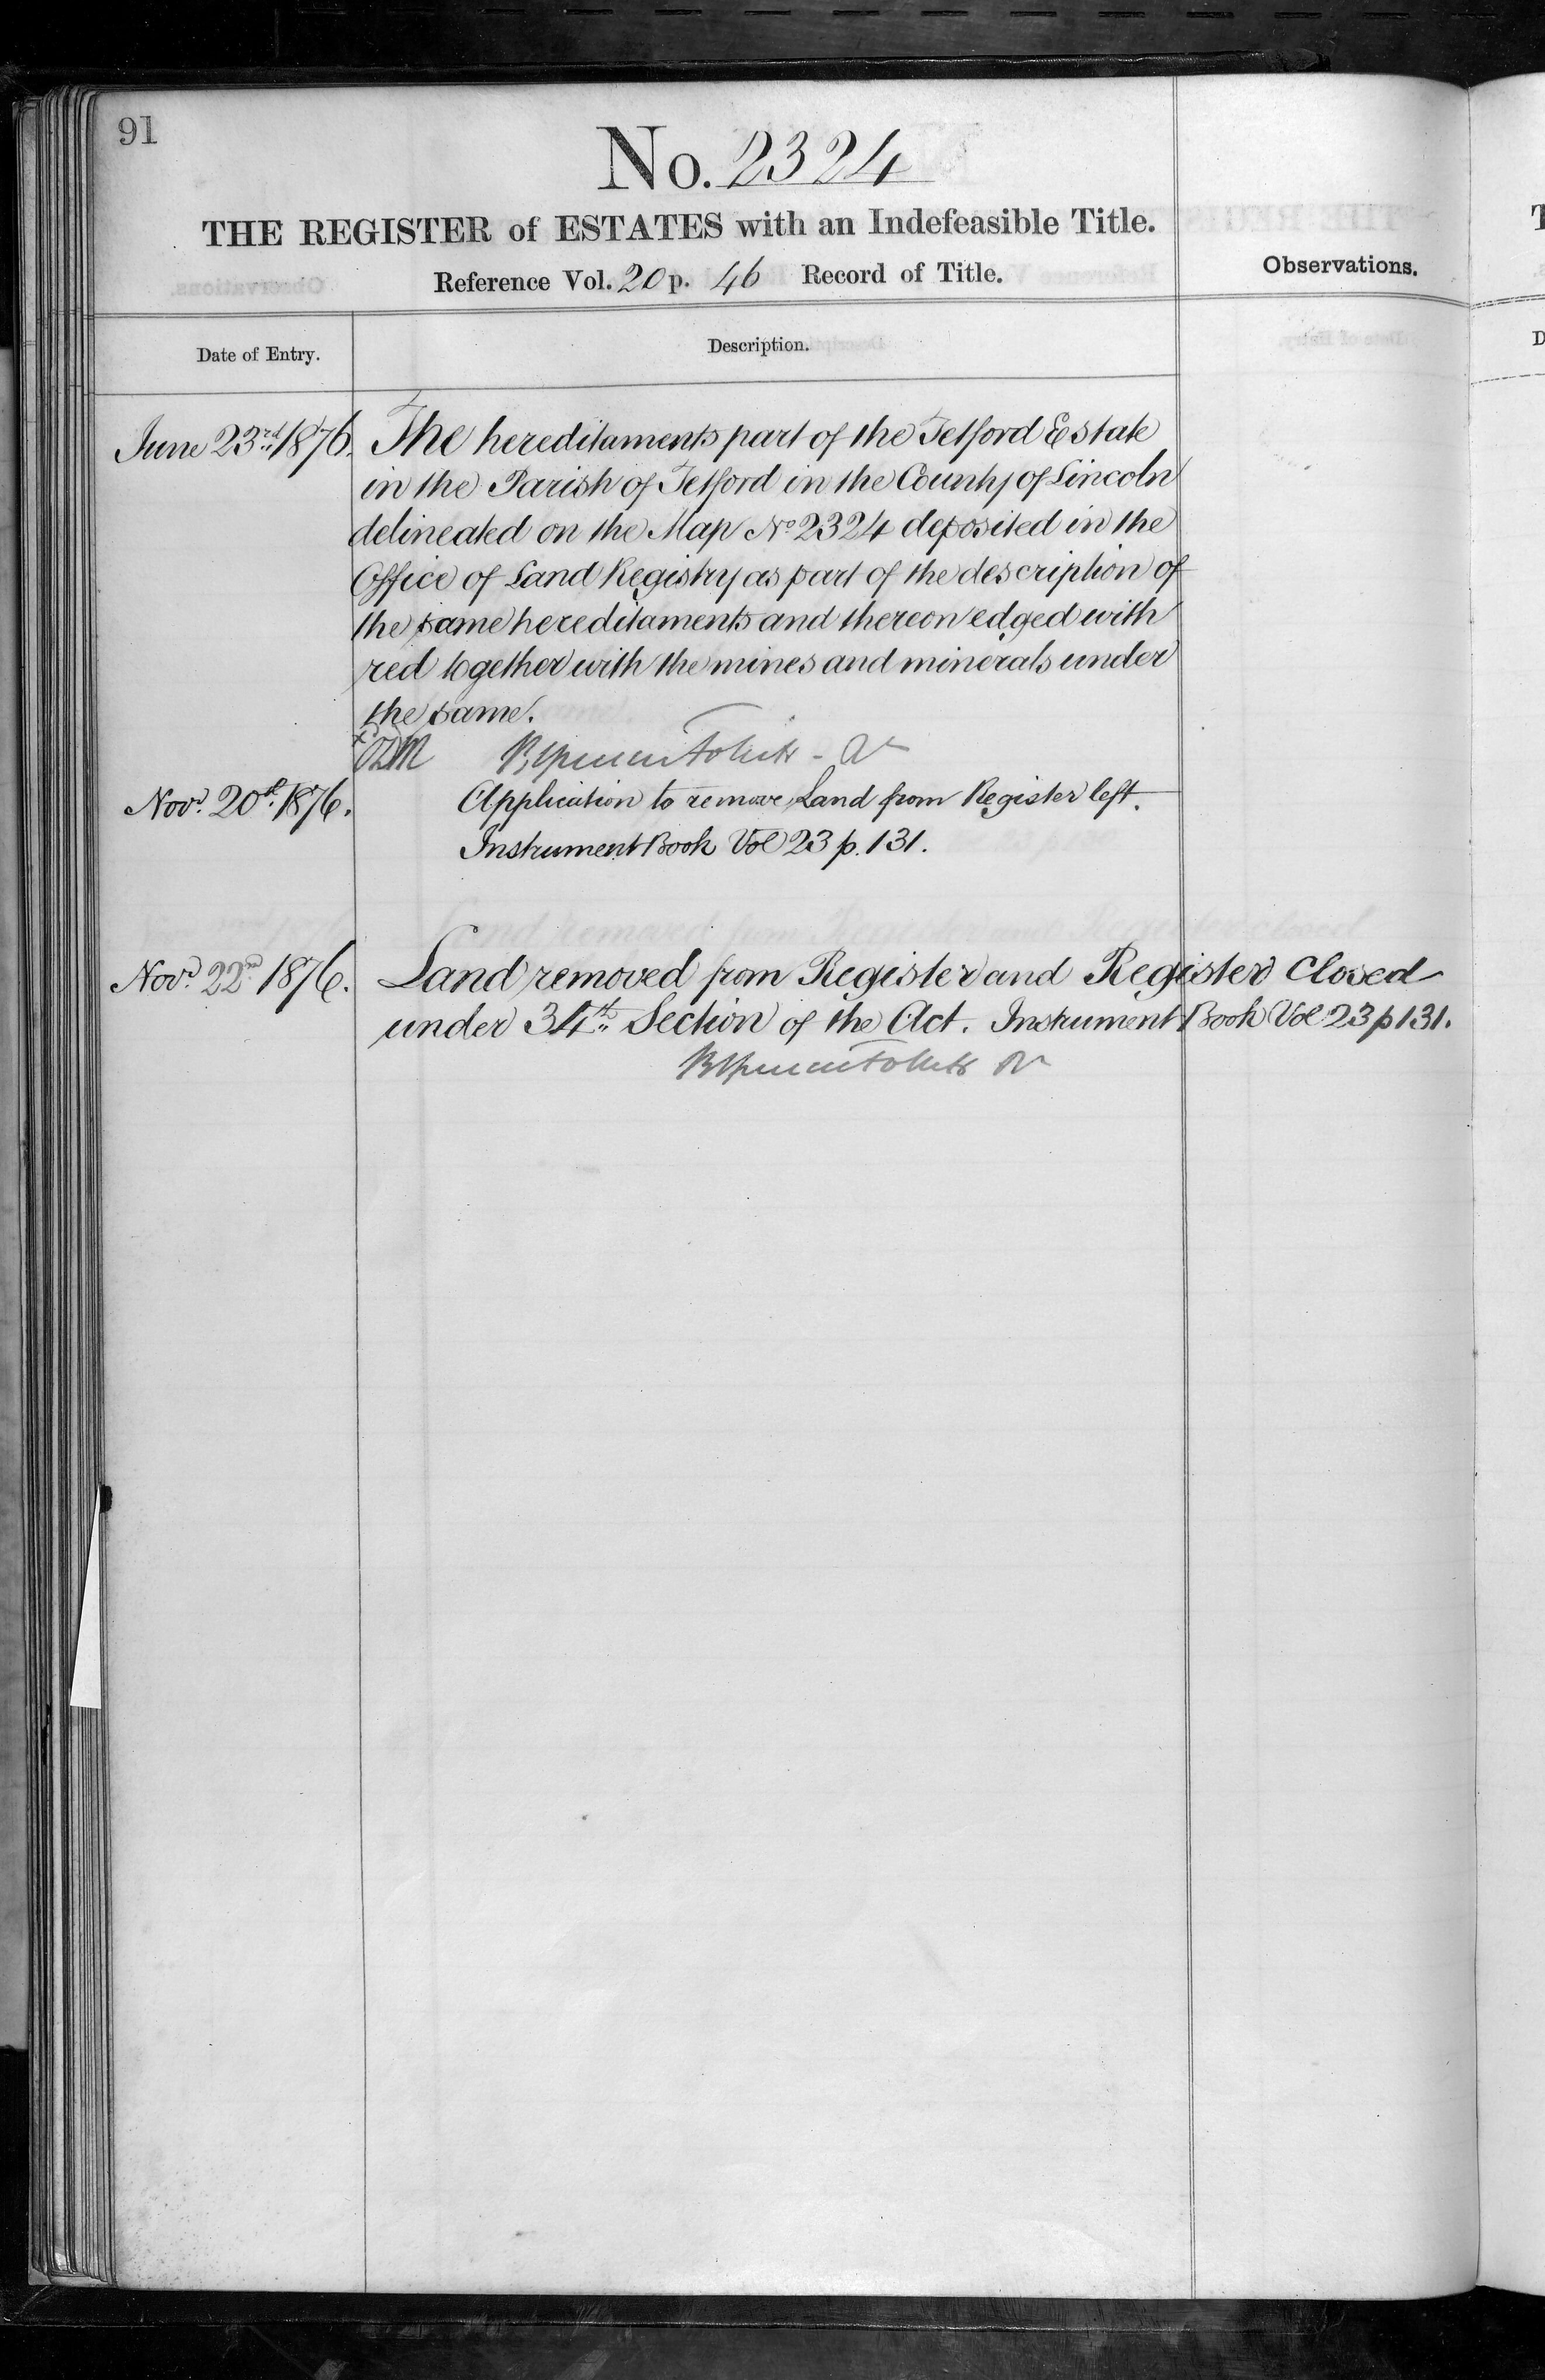 91
No. 2324
THE REGISTER of ESTATES with an Indefeasible Title.
Reference Vol. 20 p. 46 Record of Title.
Observations.
Date of Entry.
Description.
June 23rd 1876. The hereditaments part of the Tetford Estate
in the Parish of Tetford in the County of Lincoln
delineated on the Map No 2324 deposited in the
Office of Land Registry as part of the description of
the same hereditaments and thereon edged with
red together with the mines and minerals under
the same.
Novr. 20th 1876. Application to remove Land from Register left.
Instrument Book Vol 23 p. 131.
Novr. 22nd 1876. Land removed from Register and Register closed
under 34th Section of the Act. Instrument Book Vol 23 p 131.